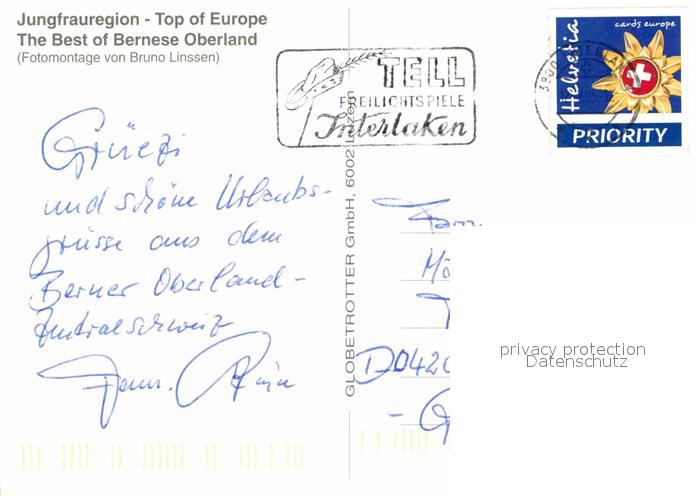 Jungfrauregion - Top of Europe
The Best of Bernese Oberland
(Fotomontage von Bruno Linssen)
TELL
FREILICHTSPIELE
Interlaken
cards europe
Helvetia
PRIORITY
Grüezi
und schöne Urlaubs-
grüsse aus dem
Berner Oberland -
Zentralschweiz
Fam.
GLOBETROTTER GmbH, 6002 Luzern
Fam.
Mö
D0420
- G
privacy protection
Datenschutz